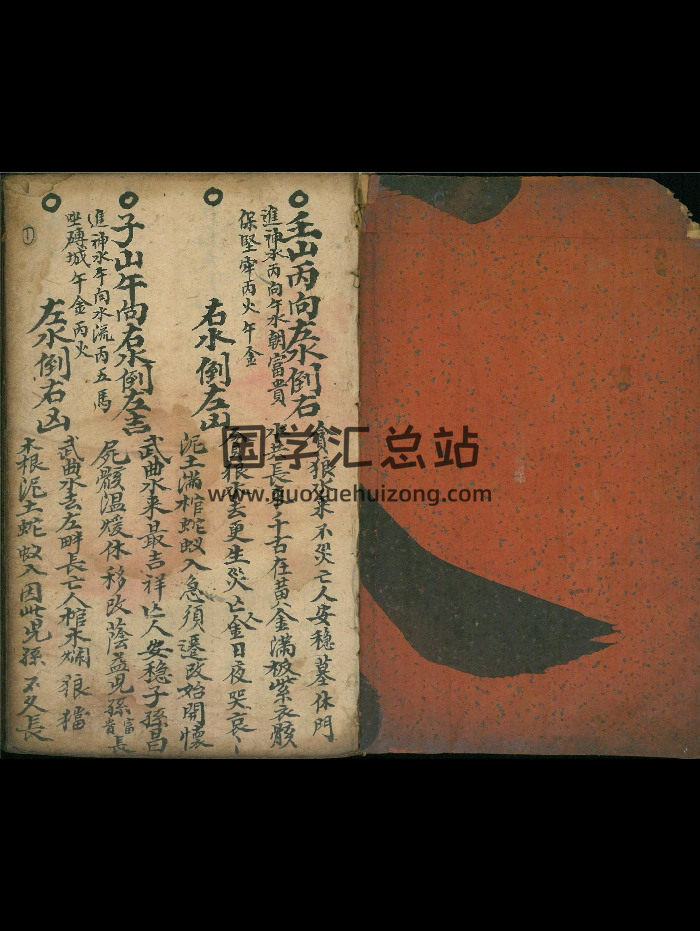 壬山丙向左水倒右
進神水丙向午水朝富貴
保堅牢丙火午金
貪狼 來不災亡人安穩墓休門
水 長 千古在黃金滿 紫衣骸
右水倒左凶
貪狼水去更生災亡人金日夜哭哀哀
泥土滿棺蛇蚁入急須遷改始開懷
子山午向右水倒左吉
進神水午向水流丙五馬
坐磚城午金丙火
武曲水来最吉祥亡人安穩子孫昌
屍骸温煖休移改蔭益児孫富貴長
左水倒右凶
武曲水去左畔長亡人棺木爛狼
木根泥土蛇蚁入因此児孫不久長
①
国学汇总站
www.guoxuehuizong.com